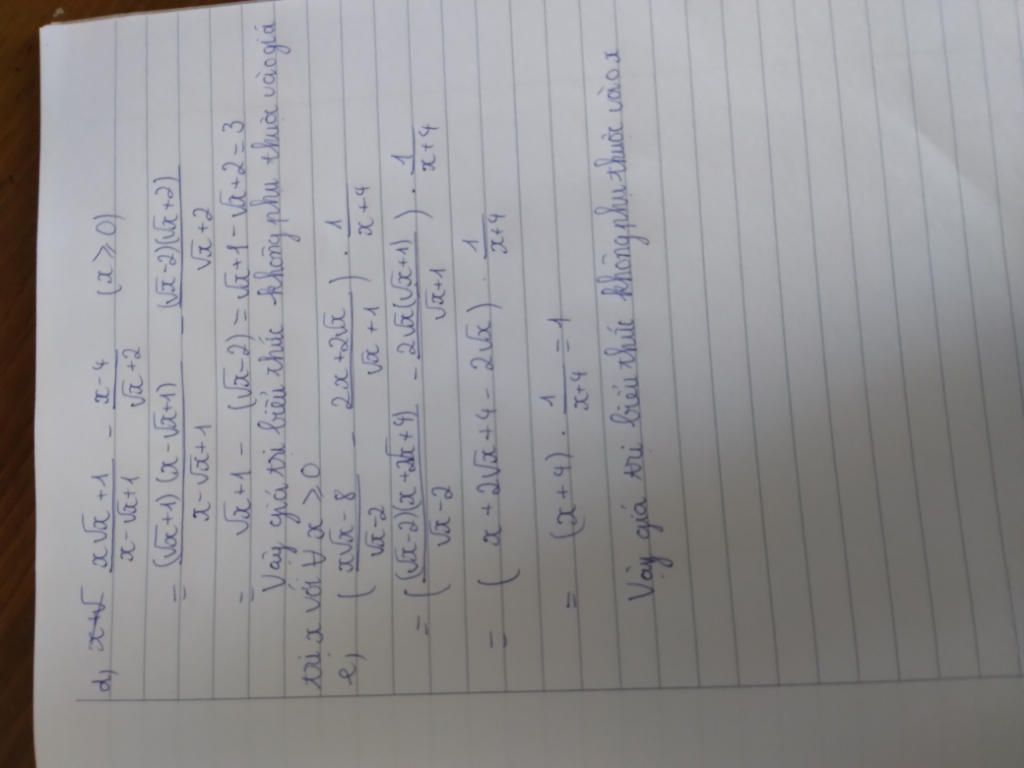 d) (x√x+1)/(x-√x+1) - (x-4)/(√x+2) (x ≥ 0)
= ((√x+1)(x-√x+1))/(x-√x+1) - ((√x-2)(√x+2))/(√x+2)
= √x+1 - (√x-2) = √x+1-√x+2 = 3
Vậy giá trị biểu thức không phụ thuộc vào giá
trị x với ∀ x ≥ 0
e) ((x√x-8)/(√x-2) - (2x+2√x)/(√x+1)) . 1/(x+4)
= (((√x-2)(x+2√x+4))/(√x-2) - (2√x(√x+1))/(√x+1)) . 1/(x+4)
= (x+2√x+4-2√x) . 1/(x+4)
= (x+4) . 1/(x+4) = 1
Vậy giá trị biểu thức không phụ thuộc vào x